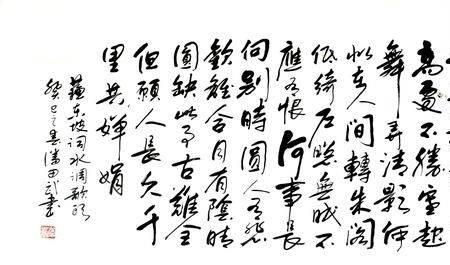 高處不勝寒起
舞弄清影何
似在人間轉朱閣
低綺户照無眠不
應有恨何事長
向別時圓人有悲
歡離合月有陰晴
圓缺此事古難全
但願人長久千
里共嬋娟
蘇東坡詞水調歌頭
癸巳之春潘田武書